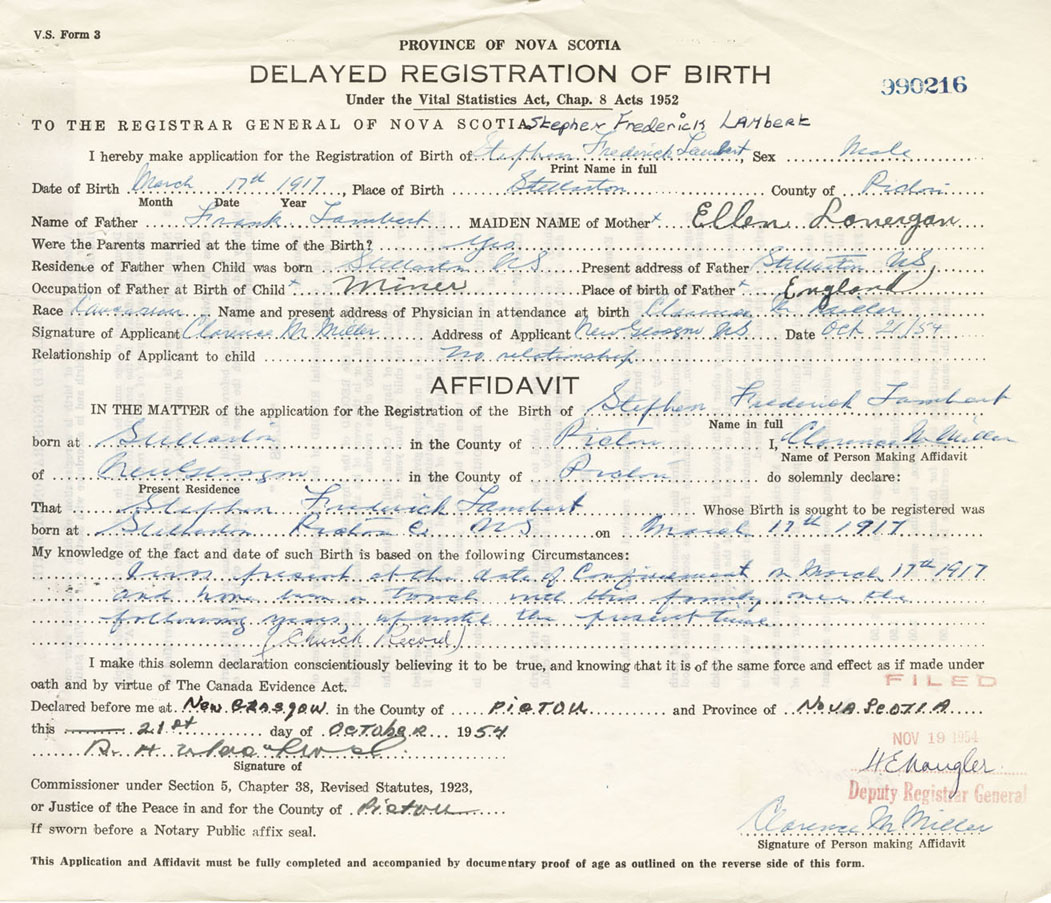 V.S. Form 3
PROVINCE OF NOVA SCOTIA
DELAYED REGISTRATION OF BIRTH
990216
Under the Vital Statistics Act, Chap. 8 Acts 1952
TO THE REGISTRAR GENERAL OF NOVA SCOTIA Stephen Frederick LAMBERT
I hereby make application for the Registration of Birth of Stephen Frederick Lambert, Sex Male
Print Name in full
Date of Birth March 17th 1917, Place of Birth Stellarton County of Pictou
Month Date Year
Name of Father Frank Lambert MAIDEN NAME of Mother x Ellen Lonergan
Were the Parents married at the time of the Birth? Yes
Residence of Father when Child was born Stellarton NS Present address of Father Stellarton NS
Occupation of Father at Birth of Child x Miner Place of birth of Father x England
Race Name and present address of Physician in attendance at birth Clarence M Miller
Signature of Applicant Clarence M Miller Address of Applicant New Glasgow NS Date Oct 21/54
Relationship of Applicant to child No relationship
AFFIDAVIT
IN THE MATTER of the application for the Registration of the Birth of Stephen Frederick Lambert
Name in full
born at Stellarton in the County of Pictou I, Clarence M Miller
Name of Person Making Affidavit
of New Glasgow in the County of Pictou do solemnly declare:
Present Residence
That Stephen Frederick Lambert Whose Birth is sought to be registered was
born at Stellarton Pictou C. NS on March 17th 1917
My knowledge of the fact and date of such Birth is based on the following Circumstances:
I was present at the date of Confinement on March 17th 1917
and have been in touch with this family over the
following years, up until the present time
(Church Record)
I make this solemn declaration conscientiously believing it to be true, and knowing that it is of the same force and effect as if made under
oath and by virtue of The Canada Evidence Act.
FILED
Declared before me at New Glasgow in the County of PICTOU and Province of NOVA SCOTIA
this 21st day of OCTOBER 1954
NOV 19 1954
Signature of
Commissioner under Section 5, Chapter 38, Revised Statutes, 1923,
Deputy Registrar General
or Justice of the Peace in and for the County of Pictou
Clarence M Miller
If sworn before a Notary Public affix seal.
Signature of Person making Affidavit
This Application and Affidavit must be fully completed and accompanied by documentary proof of age as outlined on the reverse side of this form.